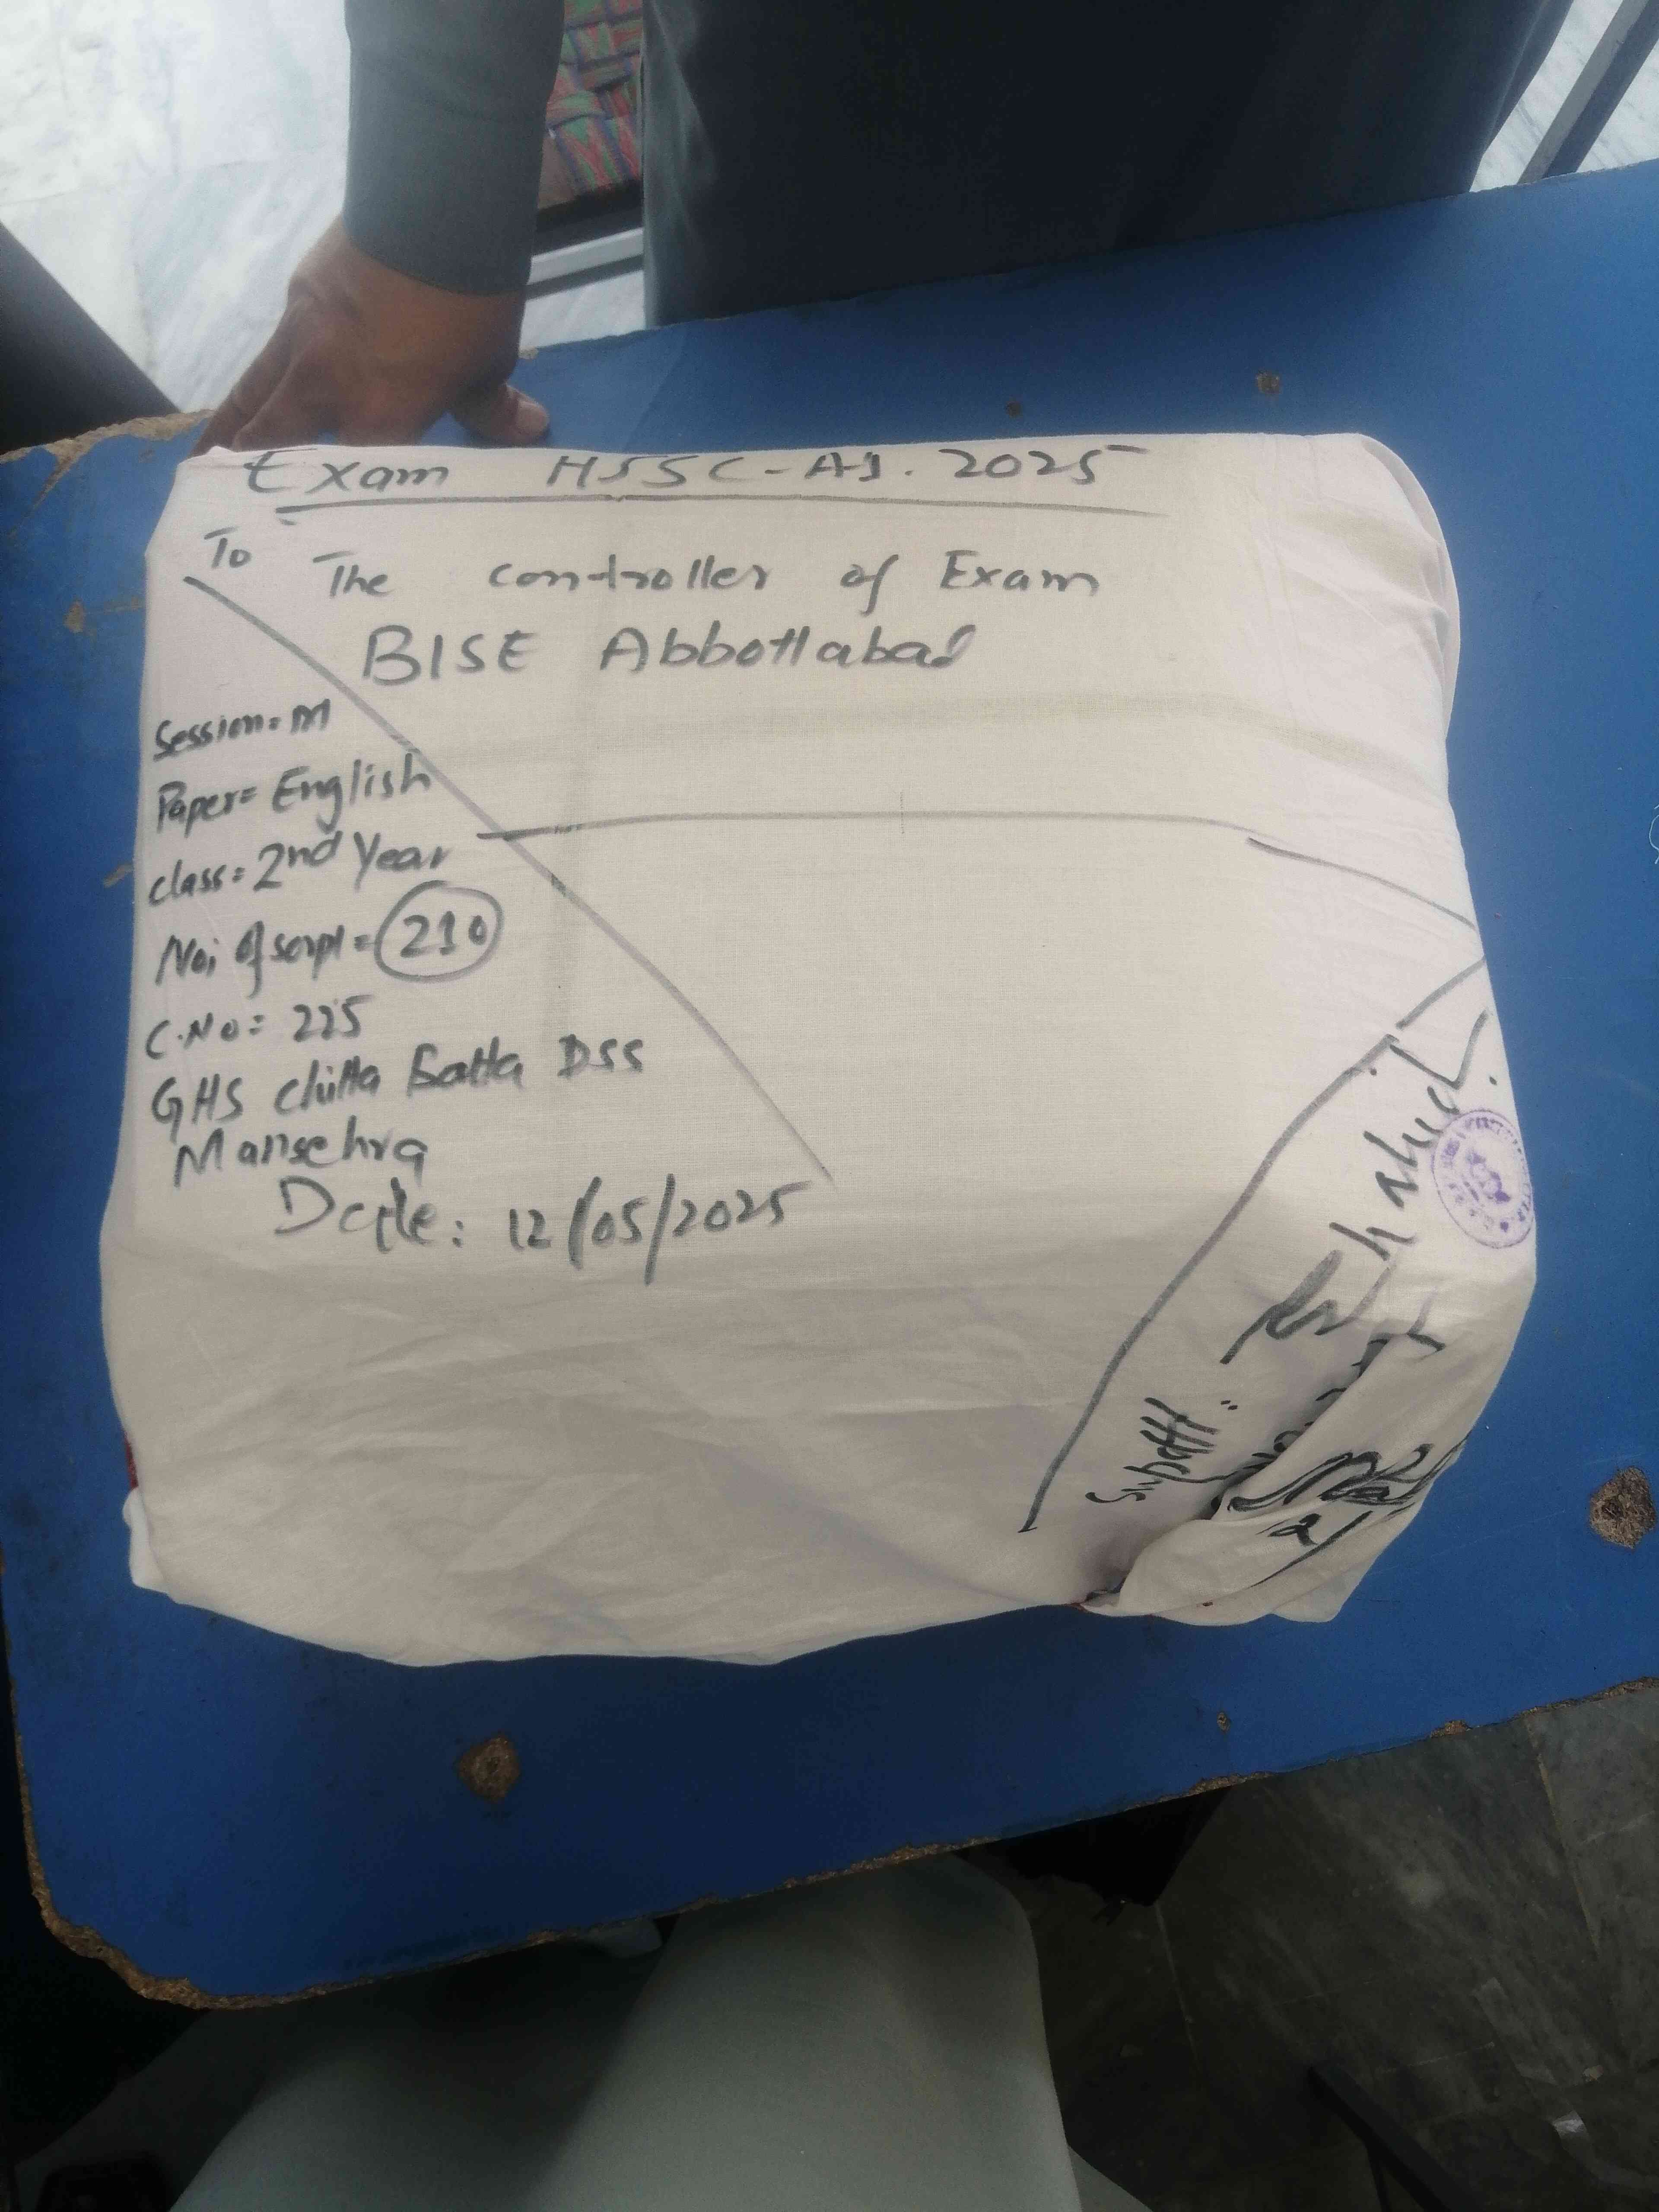 Exam HSSC-A1. 2025
To
The controller of Exam
BISE Abbottabad
Session = M
Paper = English
class = 2nd Year
No; of script = 210
C.No = 225
GHS Chitta Batta DSS
Mansehra
Date: 12/05/2025
Supdtt: